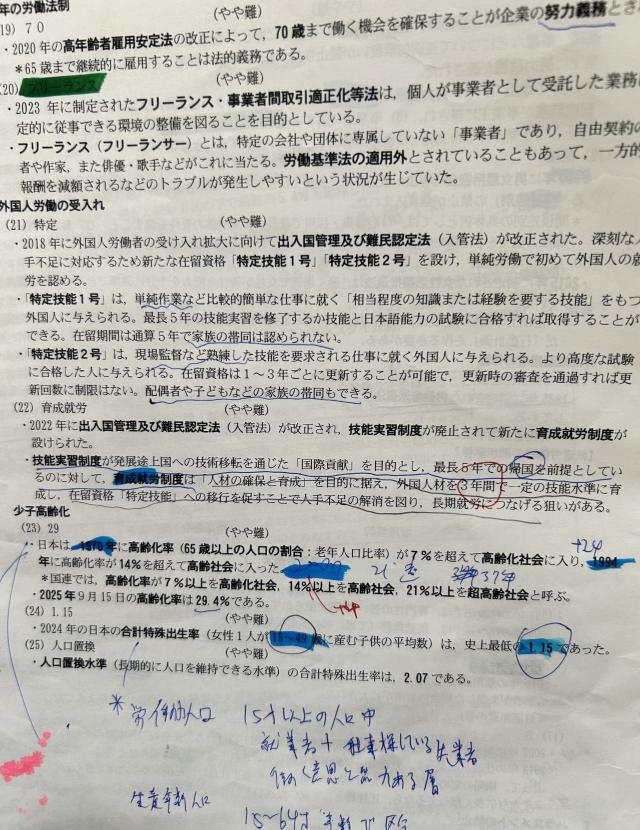 年の労働法制
19) 70 (やや難)
・2020年の高年齢者雇用安定法の改正によって，70歳まで働く機会を確保することが企業の努力義務とさ
＊65歳まで継続的に雇用することは法的義務である。
(20) フリーランス (やや難)
・2023年に制定されたフリーランス・事業者間取引適正化等法は，個人が事業者として受託した業務に
定的に従事できる環境の整備を図ることを目的としている。
・フリーランス（フリーランサー）とは，特定の会社や団体に専属していない「事業者」であり，自由契約の
者や作家，また俳優・歌手などがこれに当たる。労働基準法の適用外とされていることもあって，一方的
報酬を減額されるなどのトラブルが発生しやすいという状況が生じていた。
外国人労働の受入れ
(21) 特定 (やや難)
・2018年に外国人労働者の受け入れ拡大に向けて出入国管理及び難民認定法（入管法）が改正された。深刻な
手不足に対応するため新たな在留資格「特定技能1号」「特定技能2号」を設け，単純労働で初めて外国人の就
労を認める。
・「特定技能1号」は，単純作業など比較的簡単な仕事に就く「相当程度の知識または経験を要する技能」をもつ
外国人に与えられる。最長5年の技能実習を修了するか技能と日本語能力の試験に合格すれば取得することが
できる。在留期間は通算5年で家族の帯同は認められない。
・「特定技能2号」は，現場監督など熟練した技能を要求される仕事に就く外国人に与えられる。より高度な試験
に合格した人に与えられる。在留資格は1～3年ごとに更新することが可能で，更新時の審査を通過すれば更
新回数に制限はない。配偶者や子どもなどの家族の帯同もできる。
(22) 育成就労 (やや難)
・2022年に出入国管理及び難民認定法（入管法）が改正され，技能実習制度が廃止されて新たに育成就労制度が
設けられた。
・技能実習制度が発展途上国への技術移転を通じた「国際貢献」を目的とし，最長5年での帰国を前提としてい
るのに対して，育成就労制度は「人材の確保と育成」を目的に据え，外国人材を3年間で一定の技能水準に育
成し，在留資格「特定技能」への移行を促すことで人手不足の解消を図り，長期就労につなげる狙いがある。
少子高齢化
(23) 29 (やや難)
+24
・日本は，1970年に高齢化率（65歳以上の人口の割合：老年人口比率）が7％を超えて高齢化社会に入り，1994
年に高齢化率が14％を超えて高齢社会に入った。2007
＊国連では，高齢化率が7％以上を高齢化社会，14％以上を高齢社会，21％以上を超高齢社会と呼ぶ。
・2025年9月15日の高齢化率は29.4％である。
(24) 1.15 (やや難)
・2024年の日本の合計特殊出生率（女性1人が15～49歳に産む子供の平均数）は，史上最低の1.15であった。
(25) 人口置換 (やや難)
・人口置換水準（長期的に人口を維持できる水準）の合計特殊出生率は，2.07である。
＊労働力人口 15才以上の人口中
就業者＋ している失業者
働く意思と能力ある層
生産年齢人口
15～64才 年齢で区分